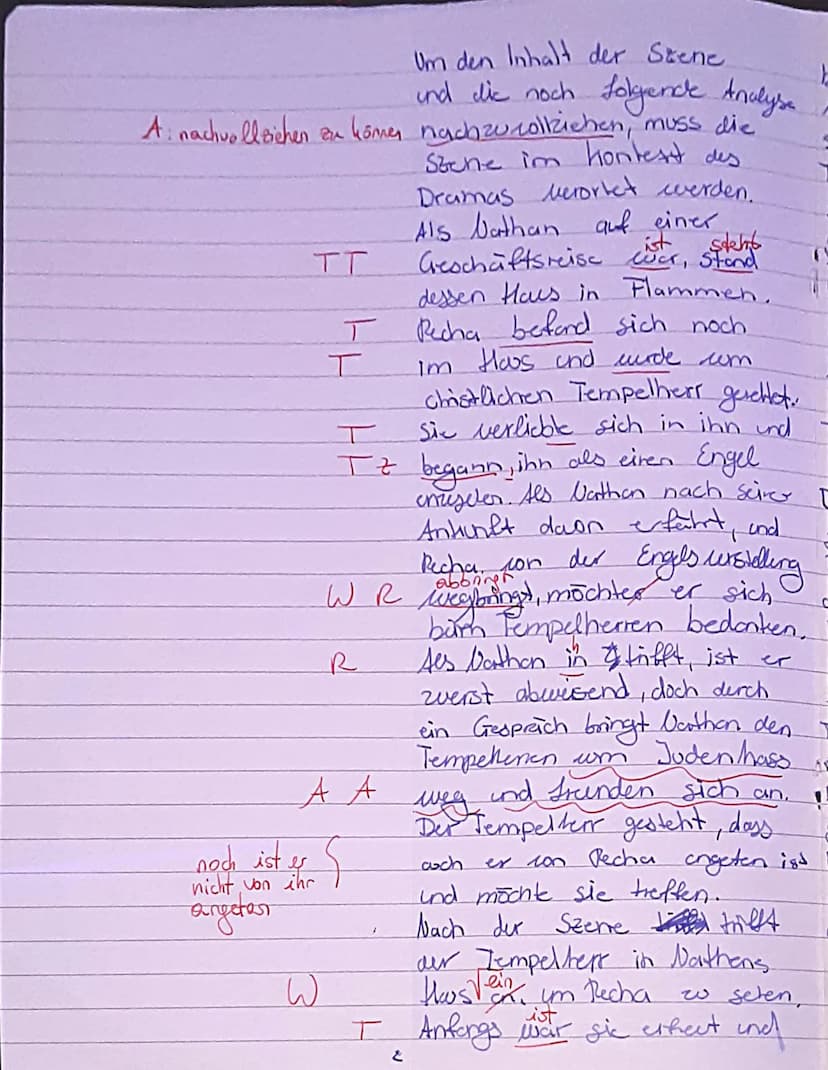 Um den Inhalt der Szene
und die noch folgende Analyse
A: nachvollziehen zu können nachzuvollziehen, muss die
Szene im Kontext des
Dramas verortet werden.
Als Nathan auf einer
ist steht
TT Geschäftsreise war, stand
dessen Haus in Flammen.
T Recha befand sich noch
T im Haus und wurde vom
christlichen Tempelherr gerettet.
T Sie verliebte sich in ihn und
T Z begann, ihn als einen Engel
anzusehen. Als Nathan nach seiner
Ankunft davon erfährt, und
Recha von der Engelsvorstellung
abbringt
W R wegbringt, möchte er sich
beim Tempelherren bedanken.
R Als Nathan ihn trifft, ist er
zuerst abweisend, doch durch
ein Gespräch bringt Nathan den
Tempelherren vom Judenhass
A A weg und freunden sich an.
Der Tempelherr gesteht, dass
noch ist er auch er von Recha angetan ist
nicht von ihr und möchte sie treffen.
angetan Nach der Szene tritt
der Tempelherr in Nathans
ein
W Haus an, um Recha zu sehen.
ist
T Anfangs war sie erfreut und